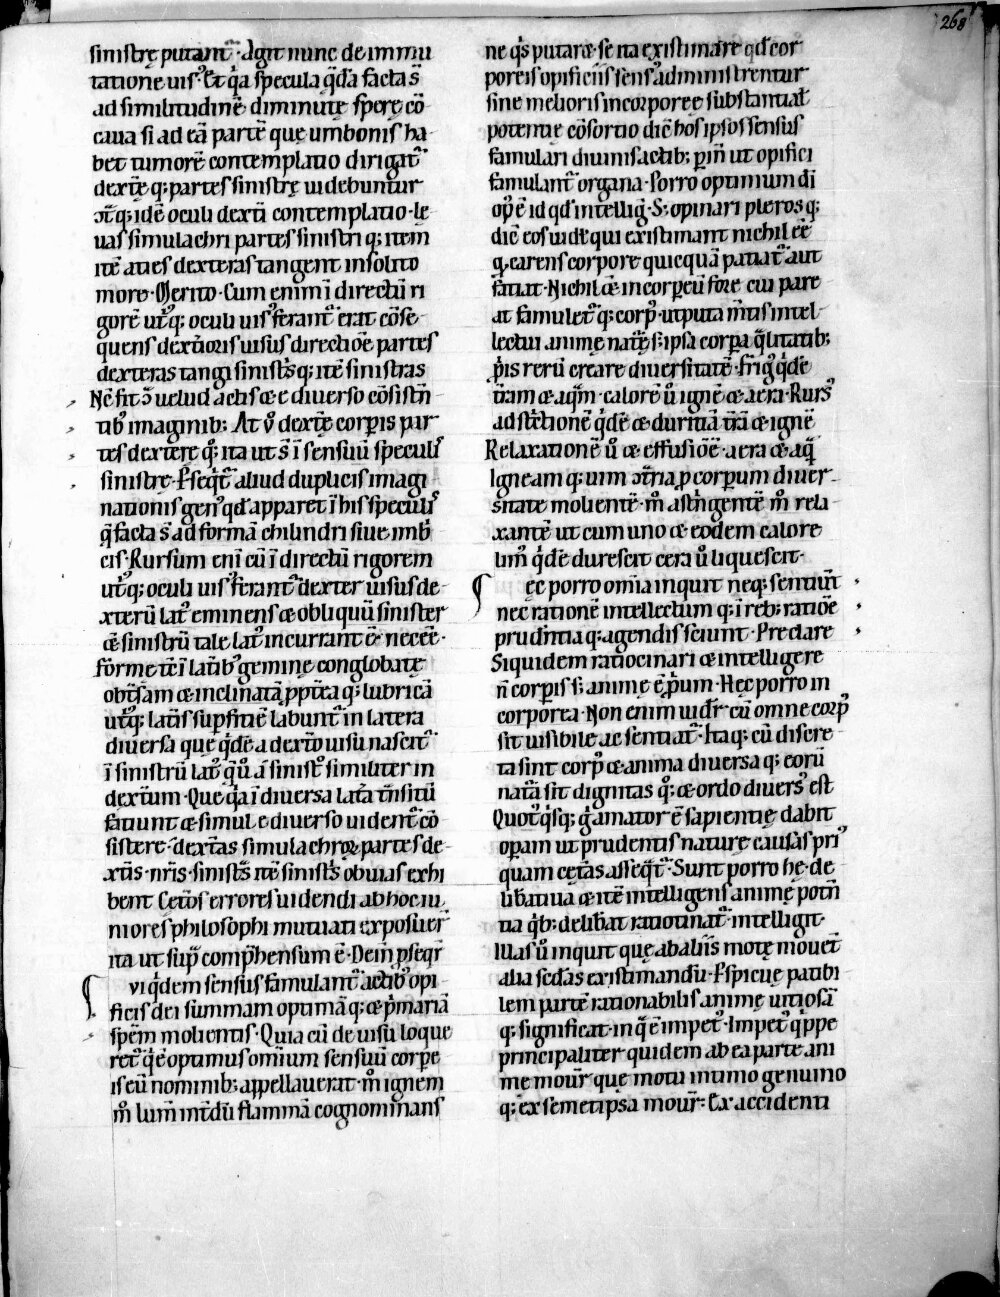 268
sinistrę putant᷑· Agit nunc de immu
tatione uis᷒· Et q̇a specula q̇dā facta s̄
ad similitudinē diminutę sperę cō
caua si ad eā partē que umbonis ha
bet tumorē contemplatio dirigat᷑
dextrę q; partes sinistrę uidebuntur
idē oculi dextri contemplatio· le
uas simulachri partes sinistri q; item
itē acies dexteras tangent insolito
more· Merito· Cum enim ī directū ri
gorē utq; oculi uis᷒ ferant᷑ erat cōse
quens dexterioris uisus directiōe partes
dexteras tangi sinistrisq; itē sinistras
Nē fit ɔ̄ uelud actis & e diuerso cōsistn̄
tib᷒ imaginib; At ū dextrę corporis par
tes dexterę q; ita ut s̄ ī sensuū speculi
sinistrę· Pseq̇t᷑ aliud duplicis imagi
nationis gen᷒ qd̄ apparet ī his speculis
q̄ facta s̄ ad formā chilindri siue imb̄
cis· Rursum eni cū ī directū rigorem
utq; oculi uis᷒ ferant᷑ dexter uisus de
xterū lat᷒ eminens & obliquū sinister
& sinistrū tale lat᷒ incurrant ē necēe·
formę
obtusam & inclinatā ppt̄ea q; lubricā
utq; lat̄is supficiē labunt᷑ in latera
diuersa que q̇dē a dextro uisu nascit᷑
ī sinistrū lat᷒ q̄ ū a sinistro similiter in
dextrum· Que q̇a ī diuersa latera trn̄situ
fatiunt & simul e diuerso uident᷑ cō
sistere· dextras simulachroꝝ partes de
xtris· nr̄is· sinistras itē sinistris obuias exhi
bent Ceteros errores uidendi ab hoc iu
niores philosophi mutuati exposuer̄
ita ut sup᷒ comp̄hensum ē· Dein pseq̇r
vi q̇dem sensus famulant᷑ actib᷒ opi
ficis dei summam optimāq; & p̄mariā
spēm molientis· Quia cū de uisu loque
ret᷑ q̇ ē optimus omnium sensuū corpe
is eū nominib; appellauerat· m̊ ignem
m̊ lum̄ int̄dū flammā cognominans
ne q̇s putaræ· se ita existimare qd̄ cor
poreis opificiis sens᷒ administrentur
sine melioris incorporeę substantiæ
potentie cōsortio dic̄ hos ipsos sensus
famulari diuinis actib; pīn ut opifici
famulant᷑ organa· Porro optimum dī
op᷒ ē id qd̄ intelligit· S; opinari plerosq;
dic̄ eos uidet̄ qui existimant nichil ēē
q̇ carens corpore quicquā patiat᷑ aut
fatiat· Nichil & incorpeū fore cui pare
at famulet᷑ q; corp᷒· utputa m̄tis intel
lectui animę natur̄ę s; ipsa corpora q̄litatib;
p̄is rerū creare diuersitatē· frig᷒ q̇dē
tr̄am & aq̄m· calorē ū ignē & aera· Rurs᷒
adstrictionē q̇dē & duritiā tr̄ā & ignē
Relaxationē ū & effusiōē· aera & aq̄
Igneam q; uim ɔ̄tria p corporum diuer
sitate molientē· m̊ astringentē m̊ rela
xantē ut cum uno & eodem calore
lim᷒ q̇dē durescit cera ū liquescit·
ec porro omnia inquit neq; sentiunt
nec rationē intellectum q; ī reb; ratiōe
prudentia q; agendis sciunt· Preclare
Siquidem ratiocinari & intelligere
n̄ corporis s; animę ē p̄prium· Hęc porro in
corporea· Non enim uidet᷑ cū omne corp᷒
sit uisibile ac sentiat᷑· Itaq; cū discre
ta sint corp᷒ & anima diuersa q; eorū
natur̄a sit dignitas q; & ordo diuers᷒ est
Quot᷒q̇sq; ḡ amator ē sapientię dabit
opam ut prudentis naturę causas pri᷒
quam ceteras asseq̇t᷑· Sunt porro hę· de
libatiua & itē intelligens animę poten
tia q̇b; deliberat ratiotinat᷑ intelligit·
Illas ū inquit que ab aliis motę mouent
alia sedas existimandū· Pspicuę patibi
lem partē rationabilis animę uitiosā
q; significat· in q̇ ē impet᷒· Impet᷒ q̇ppe
principaliter quidem ab ea parte ani
mę mouet̄ que motu intimo genuino
q; ex semetipsa mouet᷑· Ex accidenti